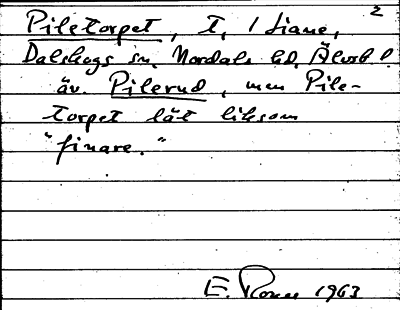 2
Piletorpet, t, 1 Liane,
Dalskogs sn, Nordals hd, Älvsb. l.
äv. Pilerud, men Pile-
torpet lät liksom
"finare."
E. 1963